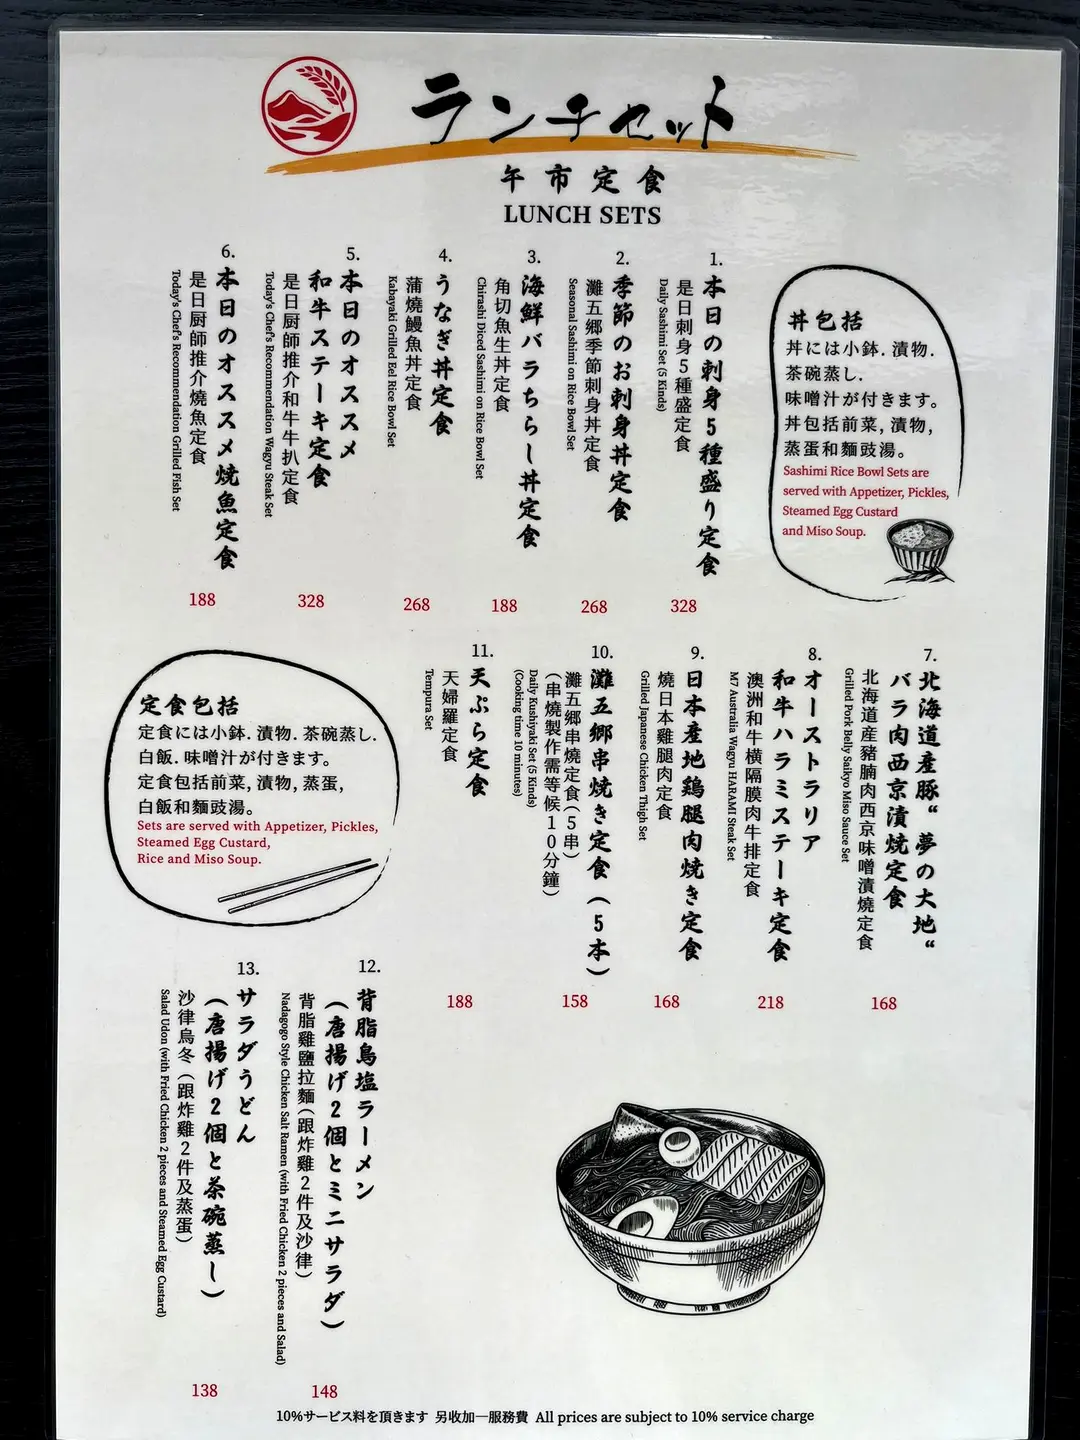 ランチセット
午市定食
LUNCH SETS
丼包括
丼には小鉢.漬物.
茶碗蒸し.
味噌汁が付きます。
丼包括前菜,漬物,
蒸蛋和麵豉湯。
Sashimi Rice Bowl Sets are
served with Appetizer, Pickles,
Steamed Egg Custard
and Miso Soup.
1.
本日の刺身5種盛り定食
是日刺身5種盛定食
Daily Sashimi Set (5 Kinds)
328
2.
季節のお刺身丼定食
灘五郷季節刺身丼定食
Seasonal Sashimi on Rice Bowl Set
268
3.
海鮮バラちらし丼定食
角切魚生丼定食
Chirashi Diced Sashimi on Rice Bowl Set
188
4.
うなぎ丼定食
蒲燒鰻魚丼定食
Kabayaki Grilled Eel Rice Bowl Set
268
5.
本日のオススメ
和牛ステーキ定食
是日厨師推介和牛牛扒定食
Today's Chef's Recommendation Wagyu Steak Set
328
6.
本日のオススメ焼魚定食
是日厨師推介燒魚定食
Today's Chef's Recommendation Grilled Fish Set
188
7.
北海道産豚“夢の大地“
バラ肉西京漬焼定食
北海道產豬腩肉西京味噌漬燒定食
Grilled Pork Belly Saikyo Miso Sauce Set
168
8.
オーストラリア
和牛ハラミステーキ定食
澳洲和牛橫隔膜肉牛排定食
M7 Australia Wagyu HARAMI Steak Set
218
9.
日本産地鶏腿肉焼き定食
燒日本雞腿肉定食
Grilled Japanese Chicken Thigh Set
168
10.
灘五郷串焼き定食(5本)
灘五郷串燒定食(5串)
(串燒製作需等候10分鐘)
Daily Kushiyaki Set (5 Kinds)
(Cooking time 10 minutes)
158
11.
天ぷら定食
天婦羅定食
Tempura Set
188
定食包括
定食には小鉢.漬物.茶碗蒸し.
白飯.味噌汁が付きます。
定食包括前菜,漬物,蒸蛋,
白飯和麵豉湯。
Sets are served with Appetizer, Pickles,
Steamed Egg Custard,
Rice and Miso Soup.
12.
背脂鳥塩ラーメン
(唐揚げ2個とミニサラダ)
背脂雞鹽拉麵(跟炸雞2件及沙律)
Nadagogo Style Chicken Salt Ramen (with Fried Chicken 2 pieces and Salad)
148
13.
サラダうどん
(唐揚げ2個と茶碗蒸し)
沙律烏冬(跟炸雞2件及蒸蛋)
Salad Udon (with Fried Chicken 2 pieces and Steamed Egg Custard)
138
10%サービス料を頂きます 另收加一服務費 All prices are subject to 10% service charge